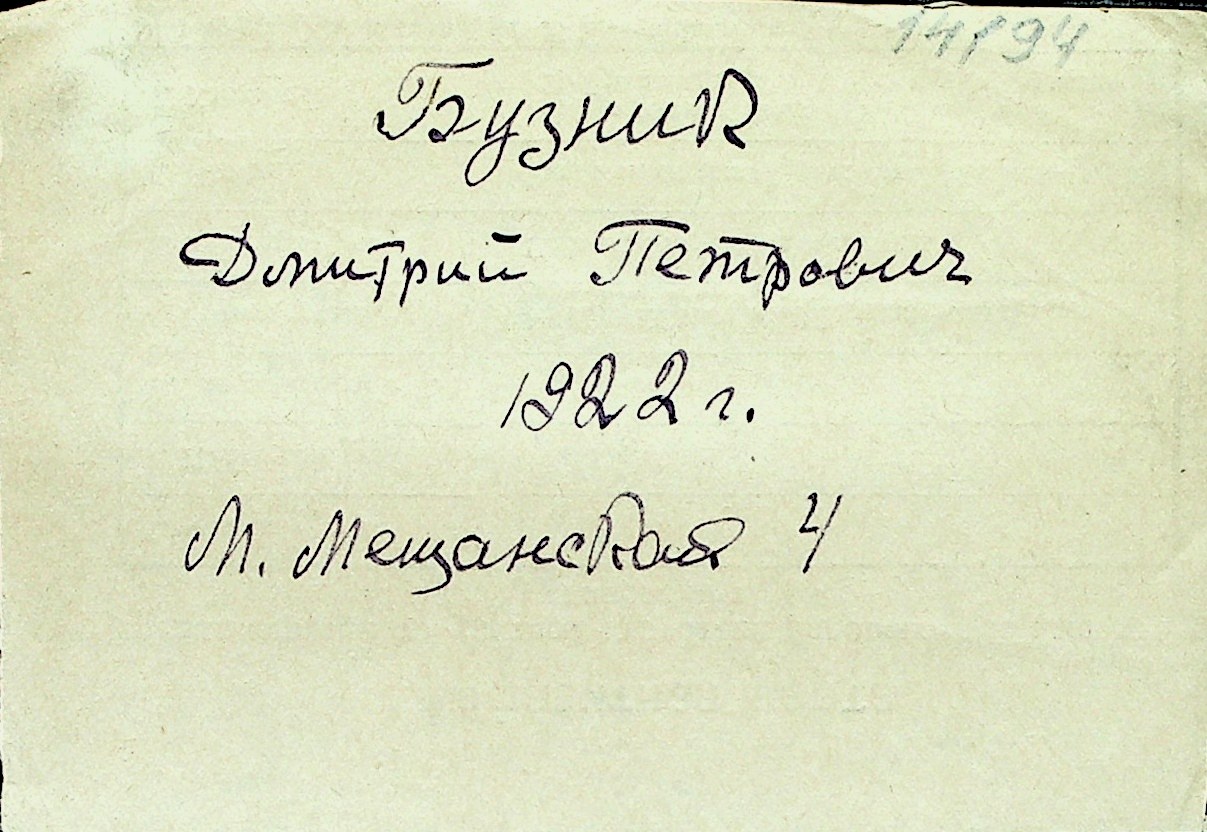 Бузник
Дмитрий Петрович
1922 г.
М. Мещанская 4